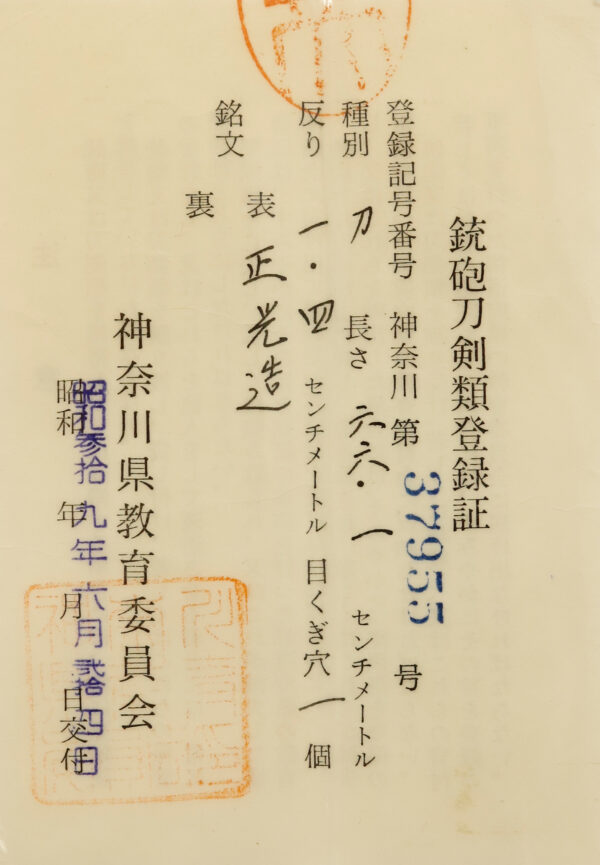 銃砲刀剣類登録証
登録記号番号 神奈川 第 37955 号
種別 刀 長さ 六六・一 センチメートル
反り 一・四 センチメートル 目くぎ穴 一 個
銘文 表 正光造
裏
神奈川県教育委員会
昭和 年 月 日交付
昭和参拾九年六月弐拾四日